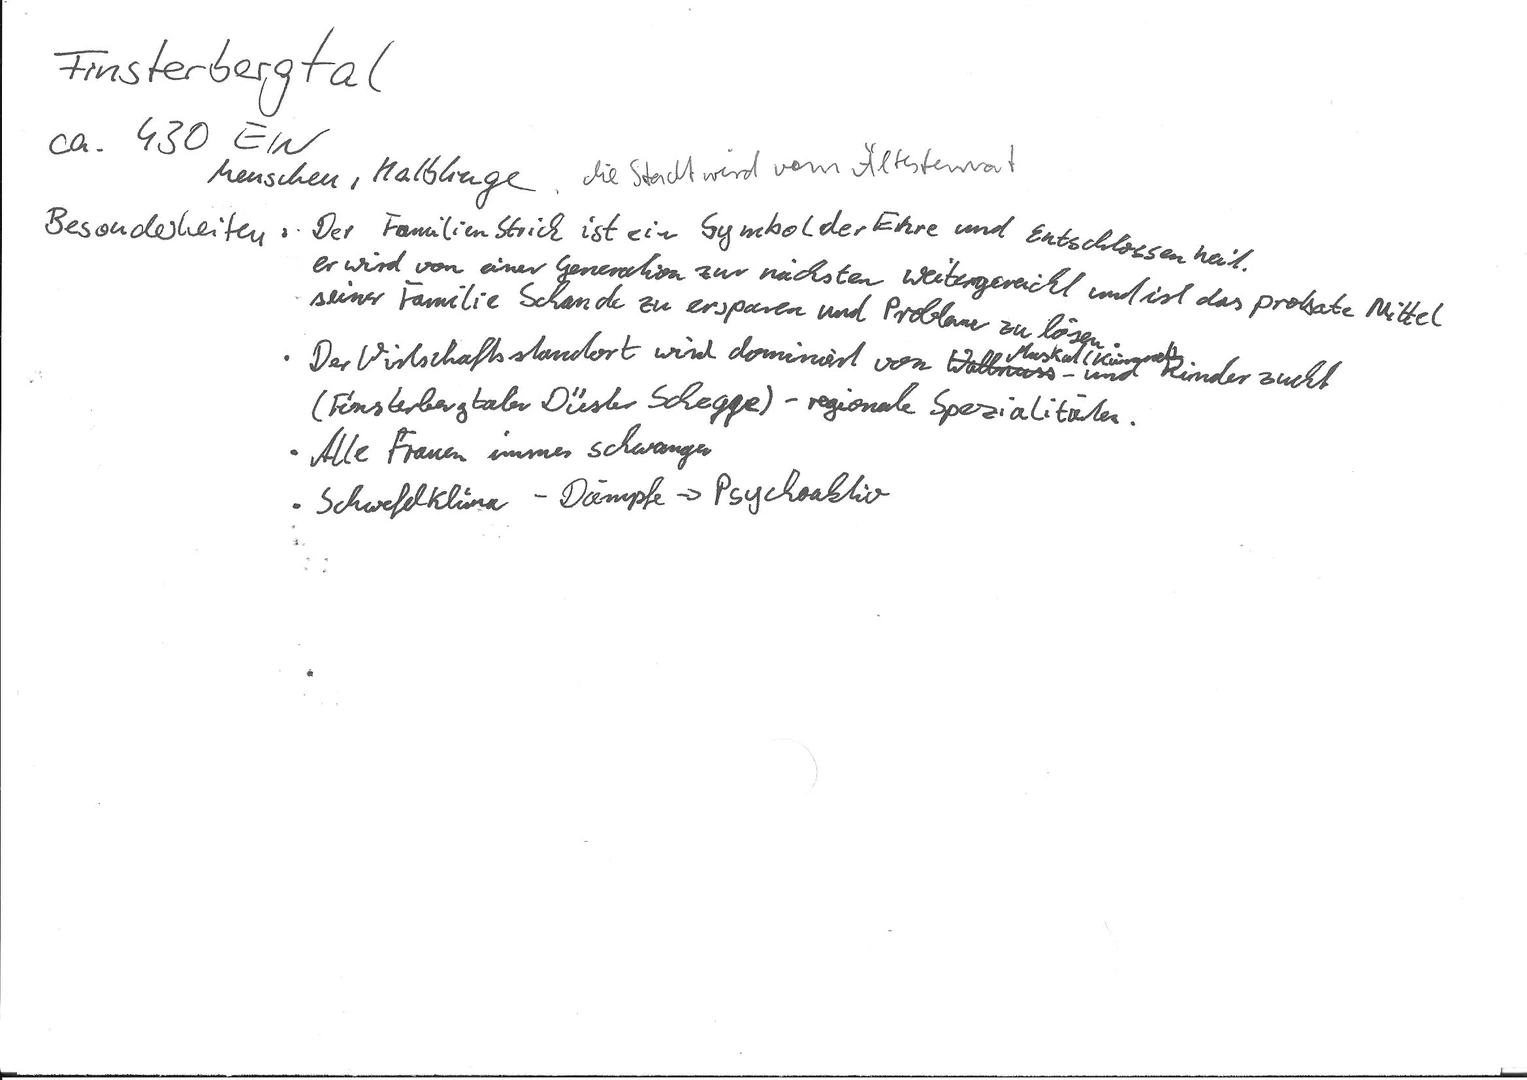 Finsterbergtal
ca. 430 EIW
Menschen, Halblinge, die Stadt wird vom Ältestenrat
Besonderheiten: · Der Familien Strick ist ein Symbol der Ehre und Entschlossenheit.
er wird von einer Generation zur nächsten weitergereicht und ist das probate Mittel
seiner Familie Schande zu ersparen und Probleme zu lösen.
· Der Wirtschaftsstandort wird dominiert von Wallnuss- und Rinderzucht
Muskat (
(Finsterbergtaler Düster Schegge) - regionale Spezialitäten.
· Alle Frauen immer schwanger
· Schwefelklima - Dämpfe -> Psychoaktiv